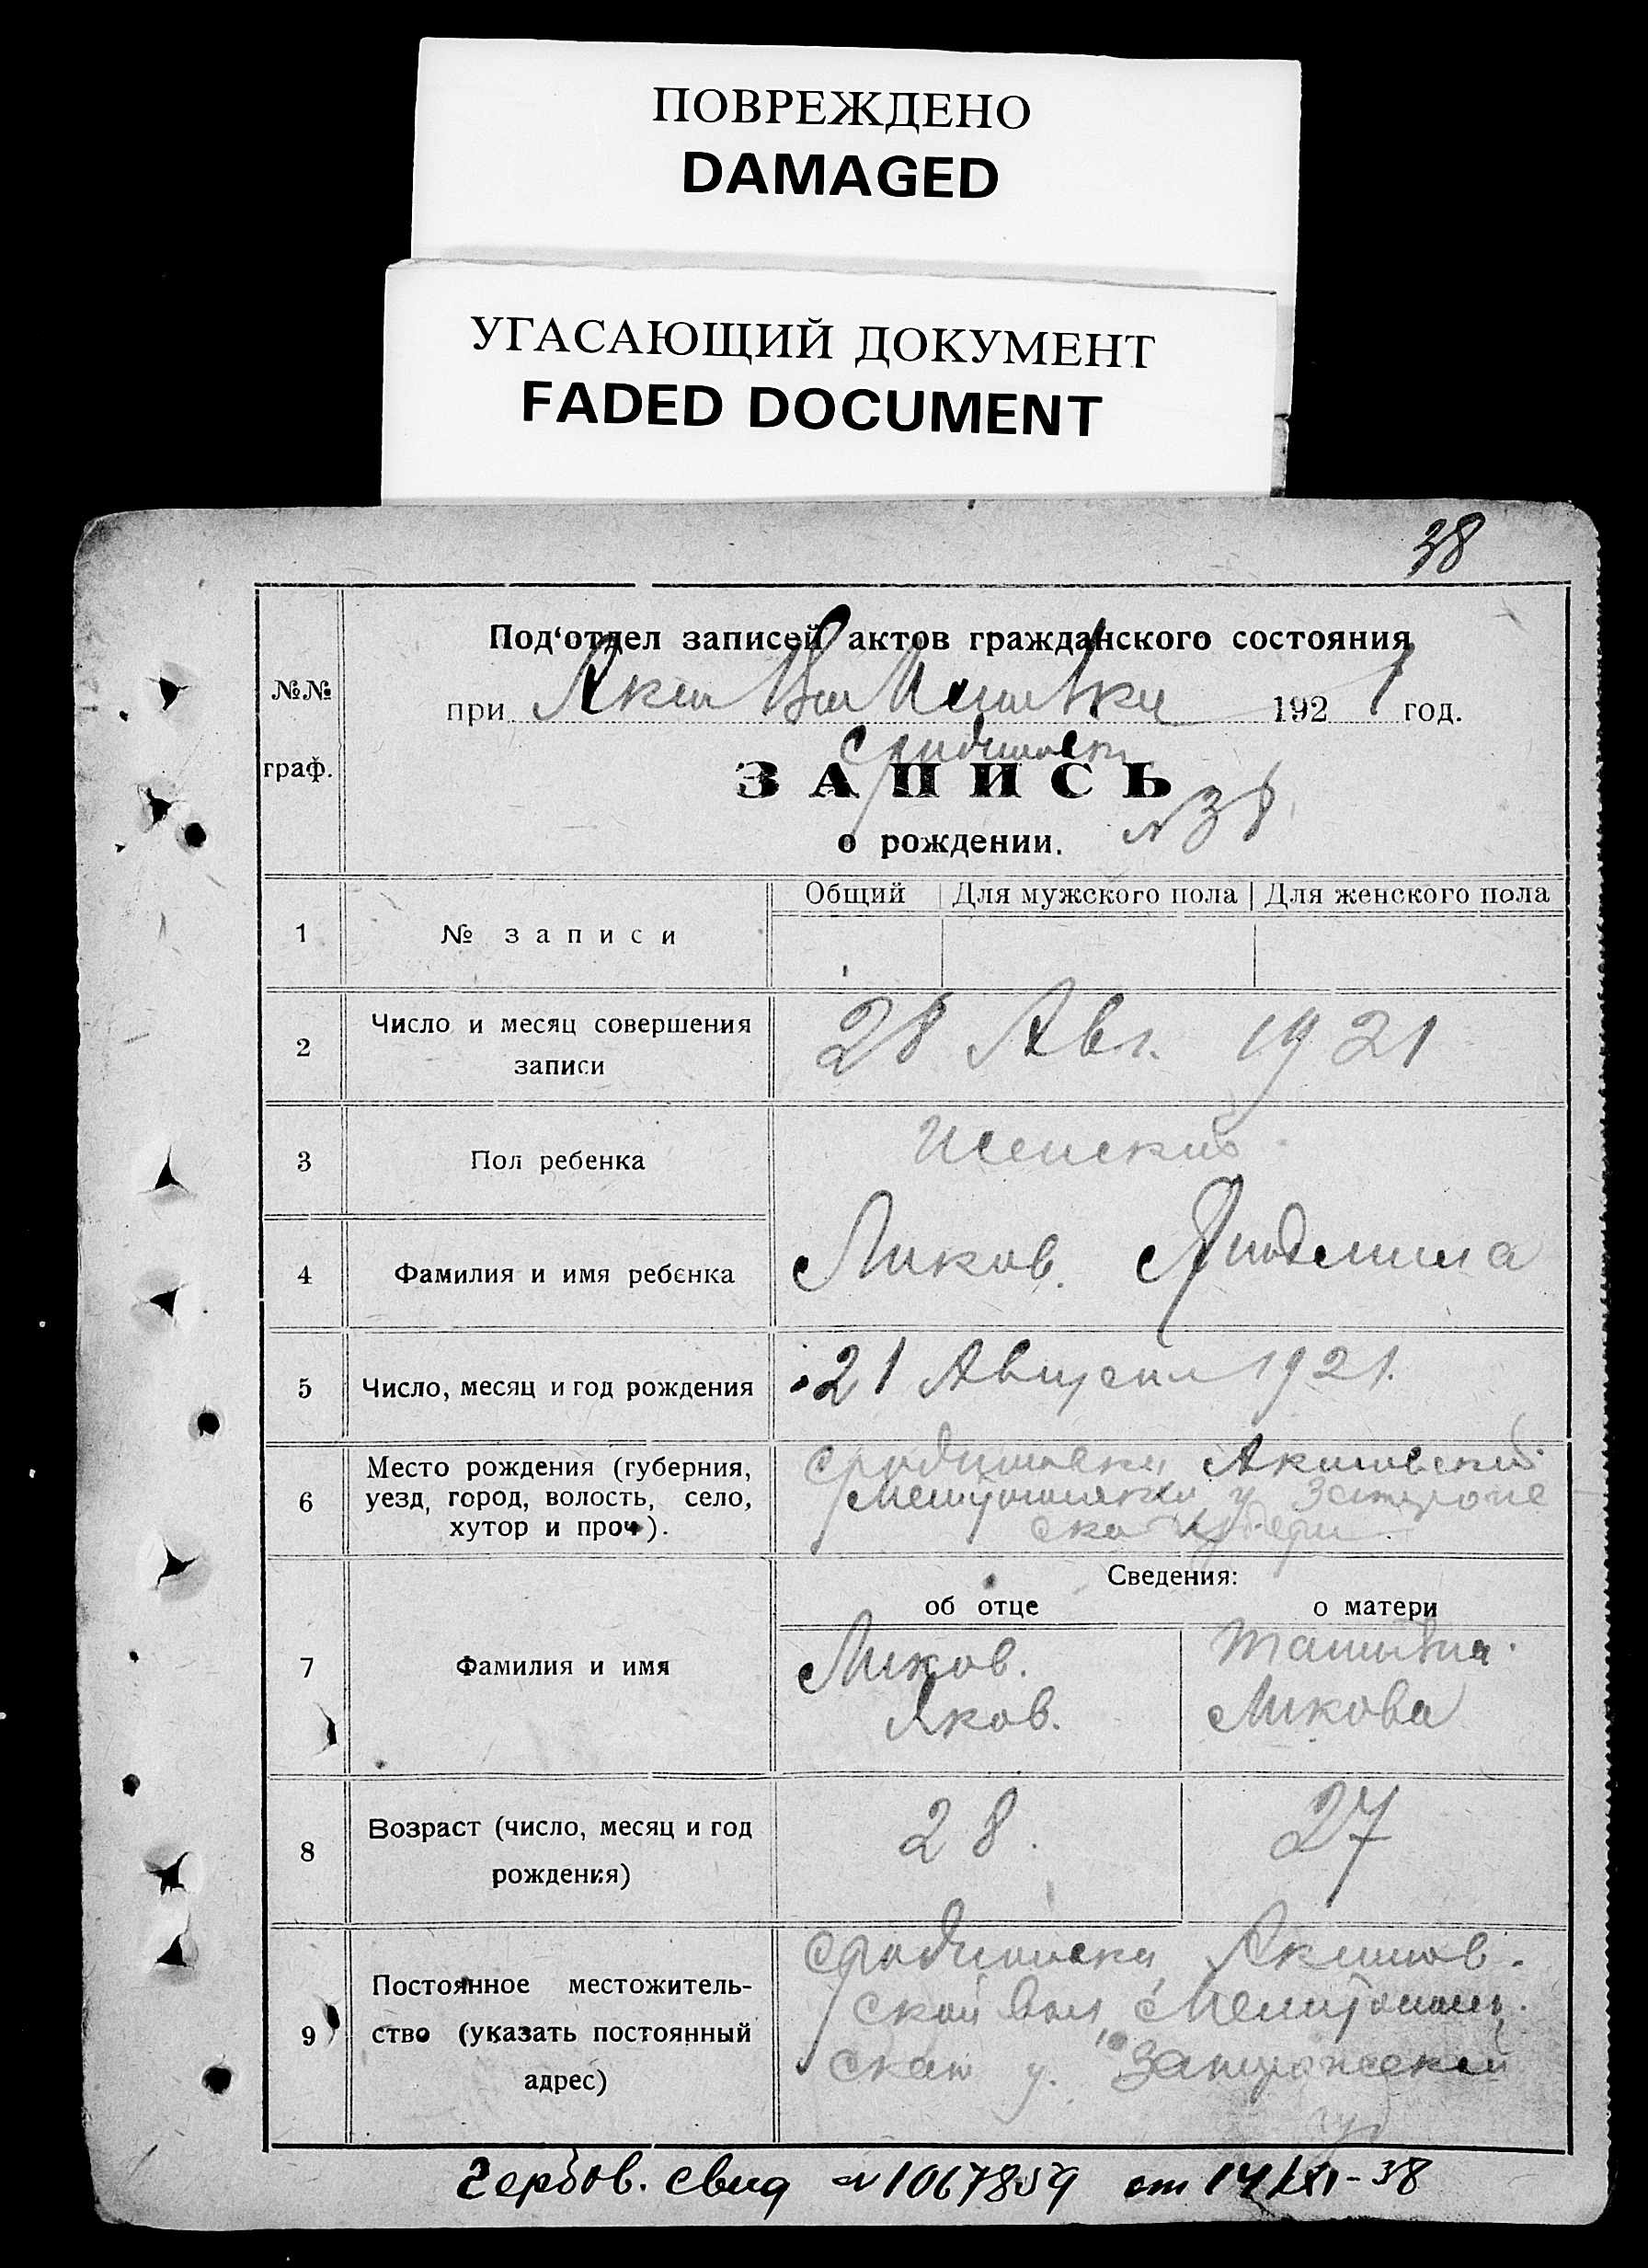 ПОВРЕЖДЕНО
DAMAGED
УГАСАЮЩИЙ ДОКУМЕНТ
FADED DOCUMENT
38
Под'отдел записей актов гражданского состояния
№№
при 1921 год.
граф.
ЗАПИСЬ
о рождении. N 38
Общий Для мужского пола Для женского пола
1 № записи
2 Число и месяц совершения записи
28 Авг. 1921
3 Пол ребенка
Женский
4 Фамилия и имя ребенка
Ликов. Людмила
5 Число, месяц и год рождения
21 Августа 1921.
6 Место рождения (губерния,
уезд, город, волость, село,
хутор и проч).
Акимовской
у
Сведения:
об отце о матери
7 Фамилия и имя
Ликов. Татьяна
Яков. Ликова
8 Возраст (число, месяц и год
рождения)
28. 27
9 Постоянное местожитель-
ство (указать постоянный
адрес)
Акимов-
ской вол Мелитополь-
ского у. Запорожской
губ
Гербов. свид N 1067859 от 14/XI-38